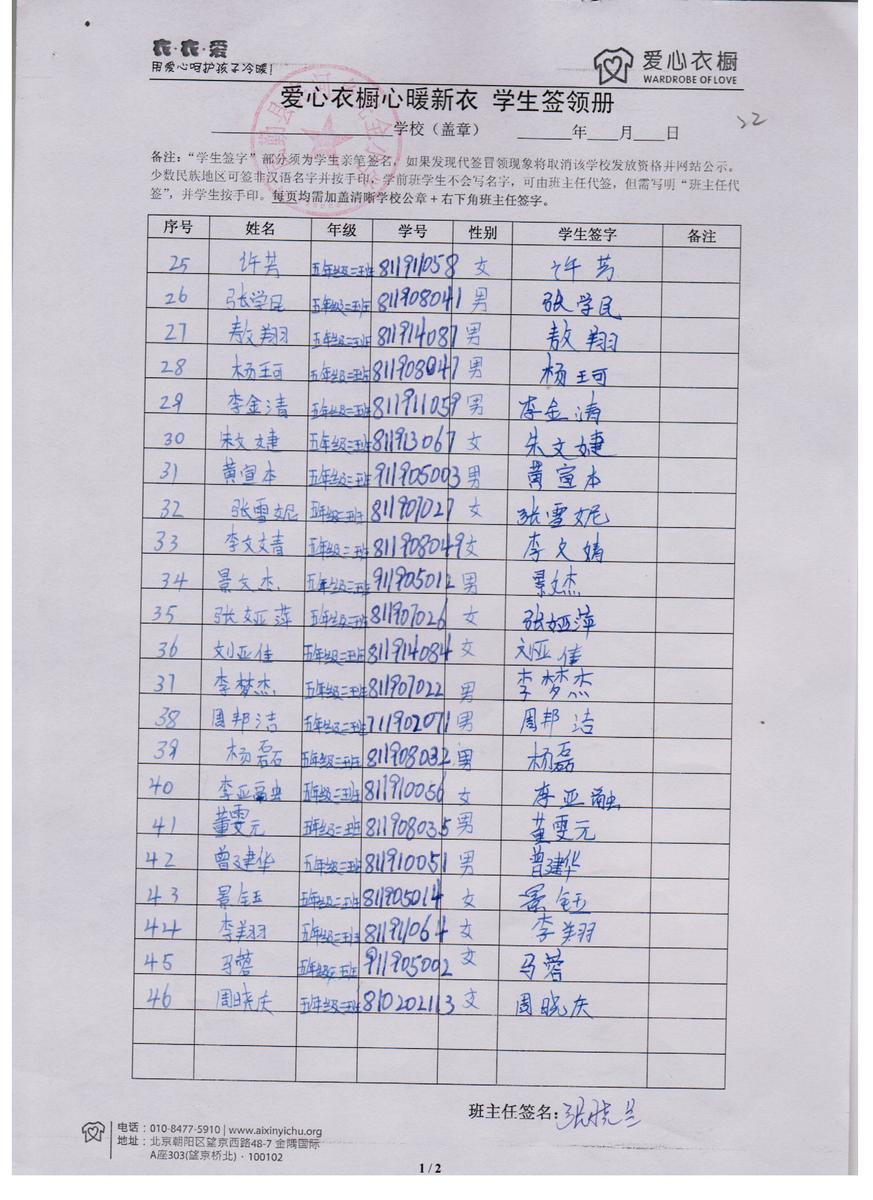 衣·衣·爱
用爱心呵护孩子冷暖!
爱心衣橱
WARDROBE OF LOVE
爱心衣橱心暖新衣 学生签领册
22
学校（盖章） 年 月 日
备注：“学生签字”部分须为学生亲笔签名，如果发现代签冒领现象将取消该学校发放资格并网站公示。
少数民族地区可签非汉语名字并按手印，学前班学生不会写名字，可由班主任代签，但需写明“班主任代
签”，并学生按手印。每页均需加盖清晰学校公章+右下角班主任签字。
序号 姓名 年级 学号 性别 学生签字 备注
25 许芳 五年级二班 811911058 女 许芳
26 张学民 五年级二班 811908041 男 张学民
27 敖翔 五年级二班 811914087 男 敖翔
28 杨珂 五年级二班 811908047 男 杨珂
29 李金清 五年级二班 811911059 男 李金清
30 朱文婕 五年级二班 811913067 女 朱文婕
31 黄宣本 五年级二班 911905003 男 黄宣本
32 张雪妮 五年级二班 811907027 女 张雪妮
33 李文婧 五年级二班 811908049 女 李文婧
34 景文杰 五年级二班 911905012 男 景文杰
35 张娅萍 五年级二班 811907026 女 张娅萍
36 刘亚佳 五年级二班 811914084 女 刘亚佳
37 李梦杰 五年级二班 811907022 男 李梦杰
38 周邦洁 五年级二班 711902071 男 周邦洁
39 杨磊 五年级二班 811908032 男 杨磊
40 李亚融 五年级二班 811910056 女 李亚融
41 董雯元 五年级二班 811908035 男 董雯元
42 曾建华 五年级二班 811910051 男 曾建华
43 景钰 五年级二班 811905014 女 景钰
44 李翔 五年级二班 811911064 女 李翔
45 马蓉 五年级二班 911905002 女 马蓉
46 周晓庆 五年级二班 810202113 女 周晓庆
班主任签名：张晓兰
电话：010-8477-5910 | www.aixinyichu.org
地址：北京朝阳区望京西路48-7 金隅国际
A座303(望京桥北)·100102
1 / 2